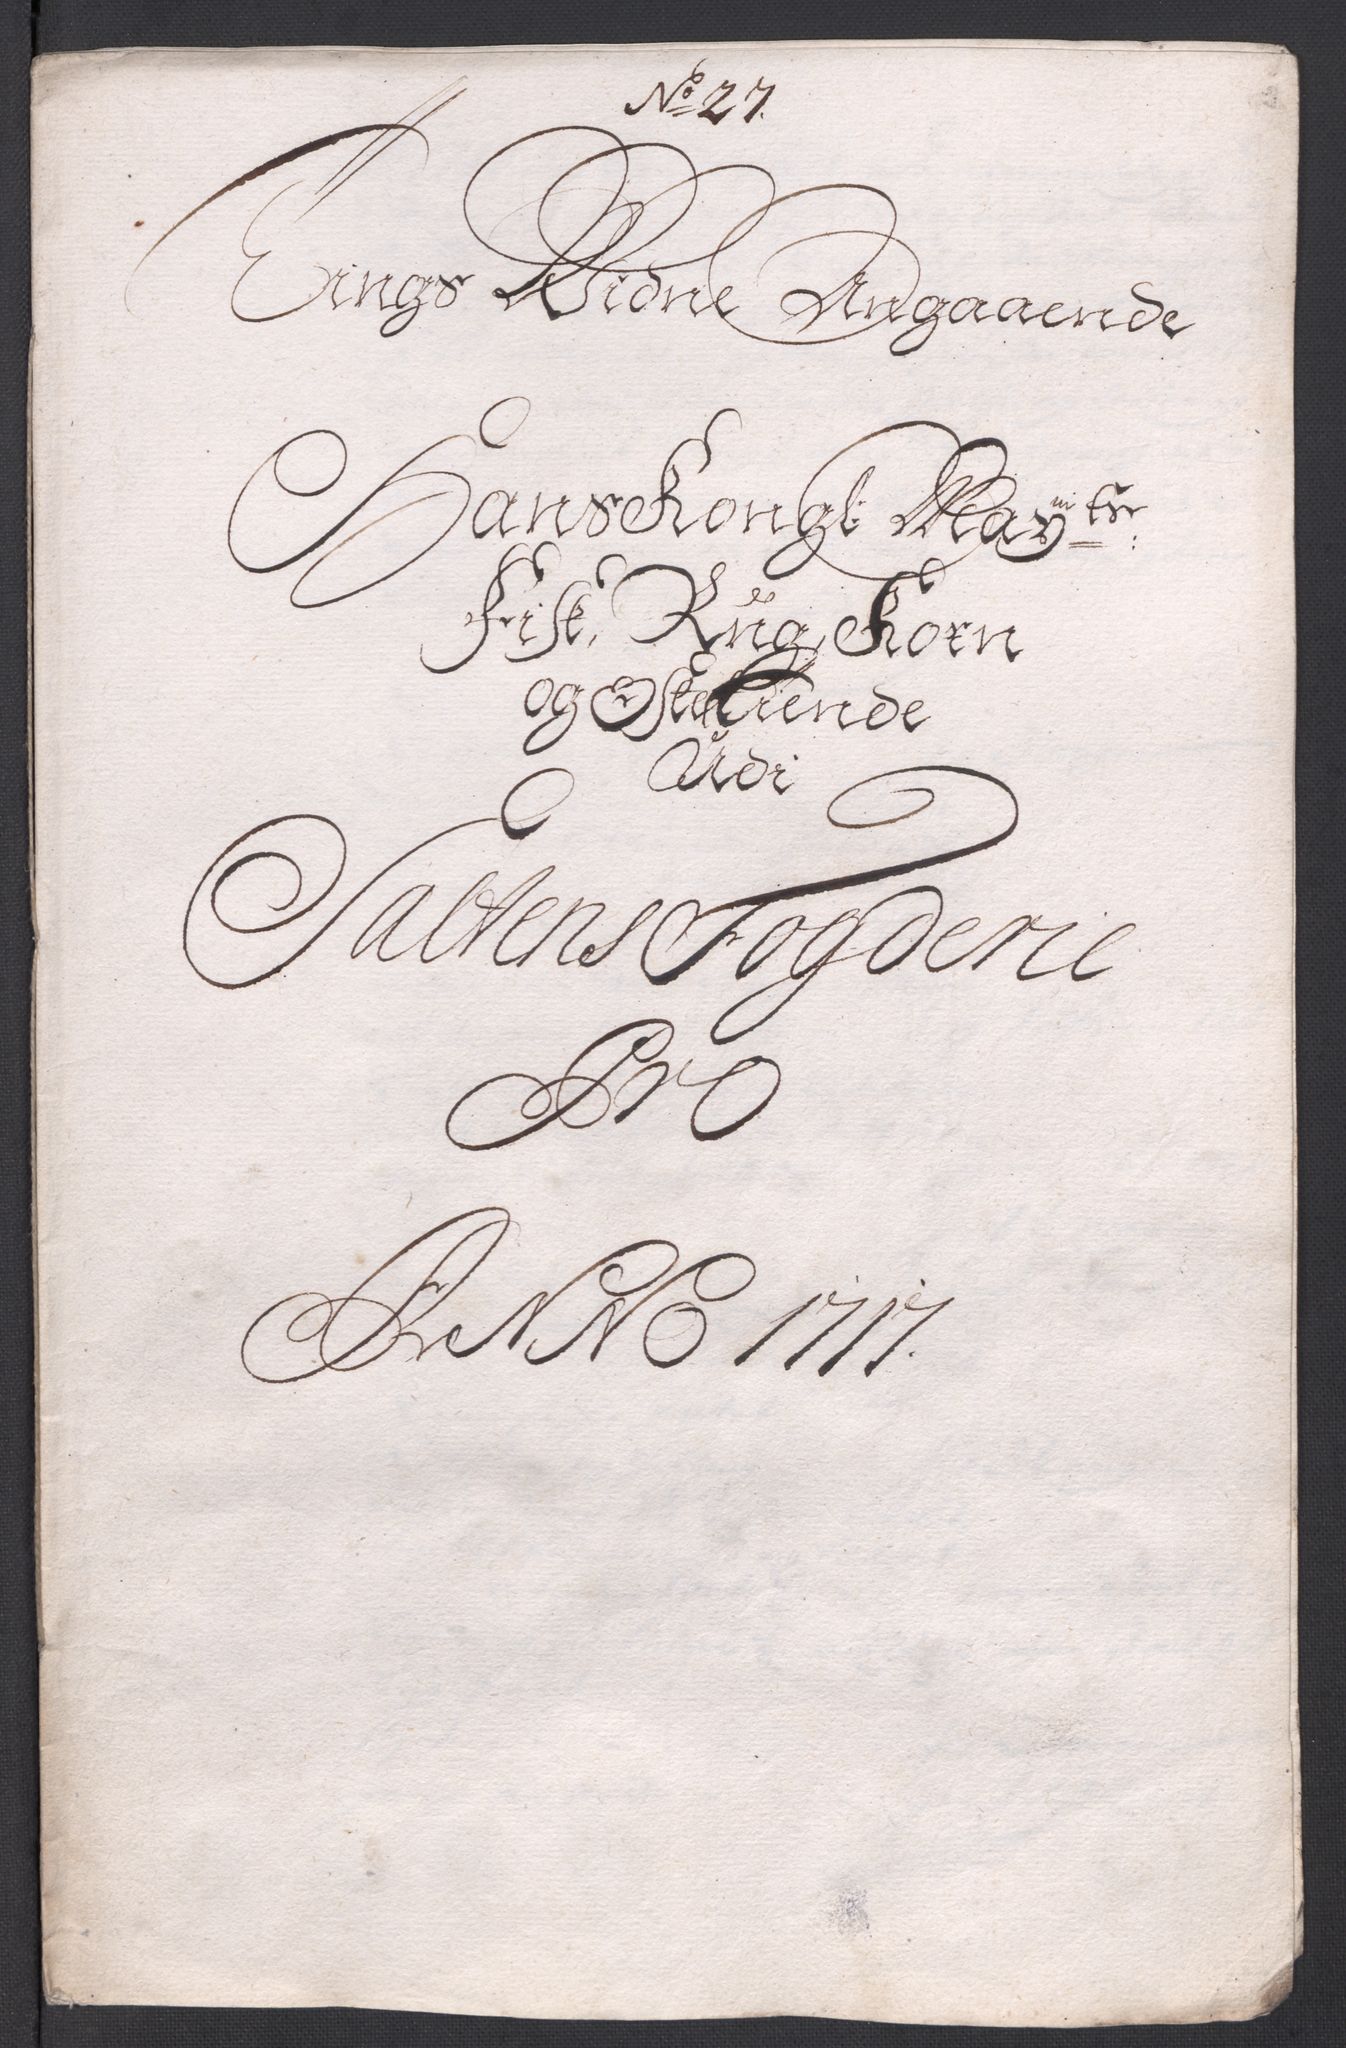 No 27.
Tings Widne Angaaende
Hans Kongl Mayts
Fisk, Rug, Korn
og Oste Tiende
Udi
Saltens Fogderie
Pro
ANNO 1717.